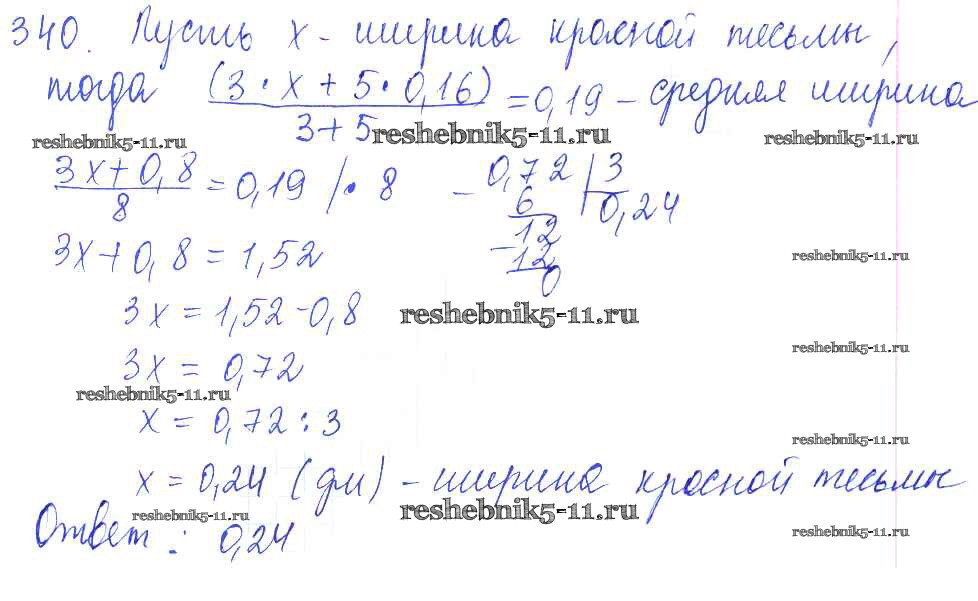 340. Пусть x - ширина красной тесьмы,
тогда (3 · x + 5 · 0,16) / 3 + 5 = 0,19 - средняя ширина
reshebnik5-11.ru reshebnik5-11.ru reshebnik5-11.ru
3x + 0,8 / 8 = 0,19 | · 8
3x + 0,8 = 1,52
3x = 1,52 - 0,8
3x = 0,72
x = 0,72 : 3
x = 0,24 (дм) - ширина красной тесьмы
Ответ: 0,24
- 0,72 | 3
6 0,24
- 12
12
0
reshebnik5-11.ru
reshebnik5-11.ru
reshebnik5-11.ru
reshebnik5-11.ru
reshebnik5-11.ru
reshebnik5-11.ru reshebnik5-11.ru
reshebnik5-11.ru